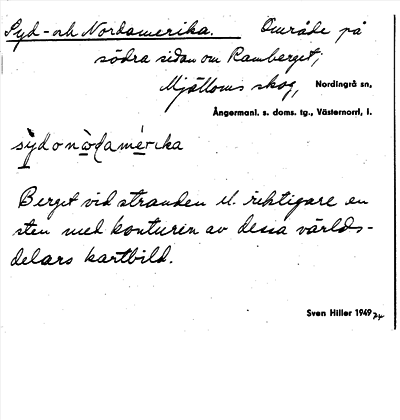 Syd- och Nordamerika. Område på
södra sidan om Ramberget,
Mjälloms skog, Nordingrå sn,
Ångermanl. s. doms. tg., Västernorrl. l.
sydonòdamérika
Berget vid stranden el. riktigare en
sten med konturen av dessa världs-
delars kartbild.
Sven Hiller 1949